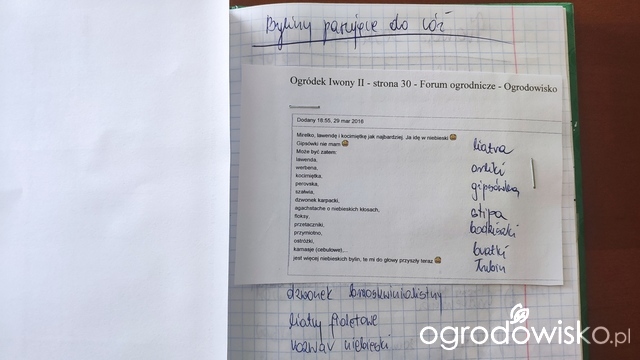 Byliny pasujące do róż
Ogródek Iwony II - strona 30 - Forum ogrodnicze - Ogrodowisko
Dodany 18:55, 29 mar 2016
Mirelko, lawendę i kocimiętkę jak najbardziej. Ja idę w niebieski
Gipsówki nie mam
Może być zatem:
lawenda,
werbena,
kocimiętka,
perovska,
szałwia,
dzwonek karpacki,
agachstache o niebieskich kłosach,
floksy,
przetaczniki,
przymiotno,
ostróżki,
kamasje (cebulowe),...
jest więcej niebieskich bylin, te mi do głowy przyszły teraz
liatra
orliki
gipsówka
stipa
bodziszki
bratki
łubin
dzwonek brzoskwiniolistny
liatry fioletowe
rozwar niebieski
ogrodowisko.pl